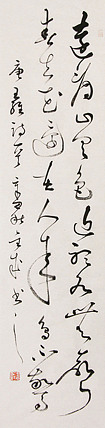 遠看山有色近聽水無聲
春去花還在人來鳥不驚
唐王維詩